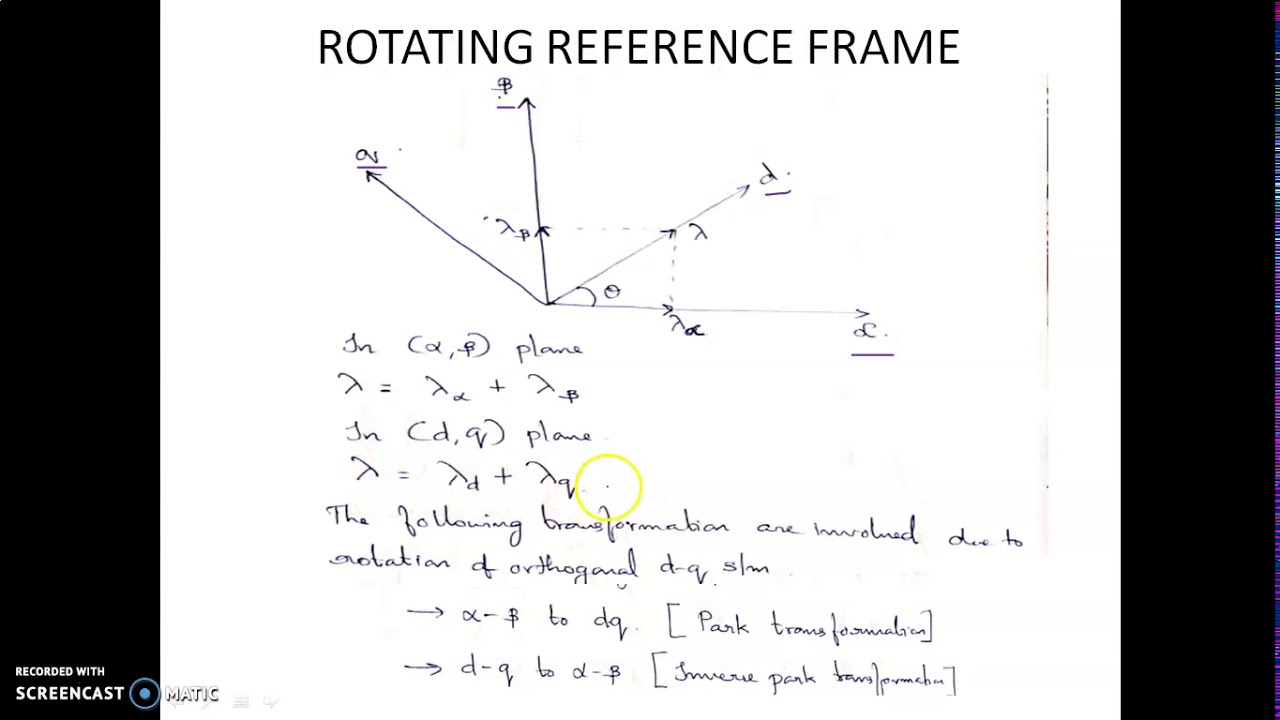 ROTATING REFERENCE FRAME
β
q
d.
λβ
λ
θ
λα
α.
In (α, β) plane
λ = λα + λβ
In (d, q) plane
λ = λd + λq
The following transformation are involved due to
rotation of orthogonal d-q s/m
→ α-β to dq. [Park transformation]
→ d-q to α-β [Inverse park transformation]
RECORDED WITH
SCREENCAST MATIC